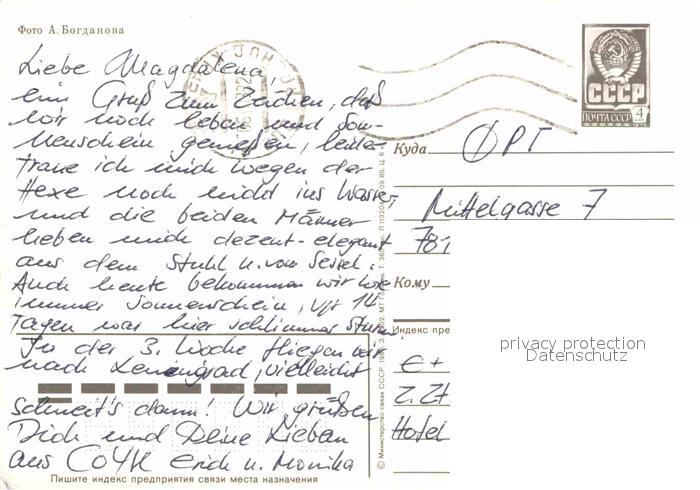 Фото А. Богданова
Liebe Magdalena,
ein Gruß zum Zeichen, daß
wir noch leben und Son-
nenschein genießen, leider
traue ich mich wegen der
Hexe noch nicht ins Wasser,
und die beiden Männer
heben mich dezent-elegant
aus dem Stuhl u. vom Sessel.
Auch heute bekommen wir wie
immer Sonnenschein, vor 14
Tagen war hier schlimmer Sturm
In der 3. Woche fliegen wir
nach Leningrad, vielleicht
schneit's dann! Wir grüßen
Dich und Deine Lieben
aus СОЧИ Erich u. Monika
Пишите индекс предприятия связи места назначения
СССР
ПОЧТА СССР 4
Куда ФРГ
Mittelgasse 7
781
Кому
Индекс пре
privacy protection
Datenschutz
E+
z. Zt
Hotel